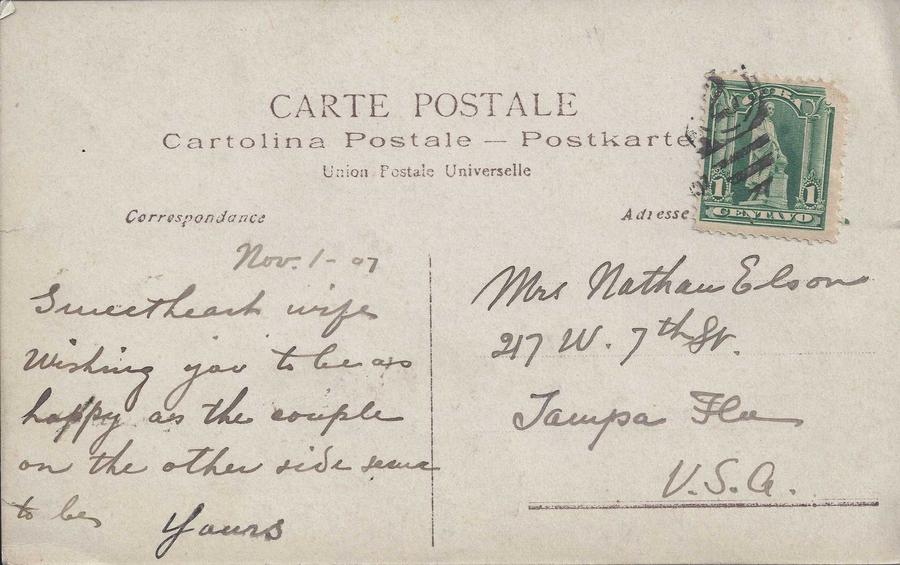 CARTE POSTALE
Cartolina Postale — Postkarte
Union Postale Universelle
Correspondance
Adresse
1 1
CENTAVO
Nov. 1-07
Sweetheart wife
Wishing you to be as
happy as the couple
on the other side seme
to be,
Yours
Mrs Nathan Elson
217 W. 7th St.
Tampa Fla
U.S.A.